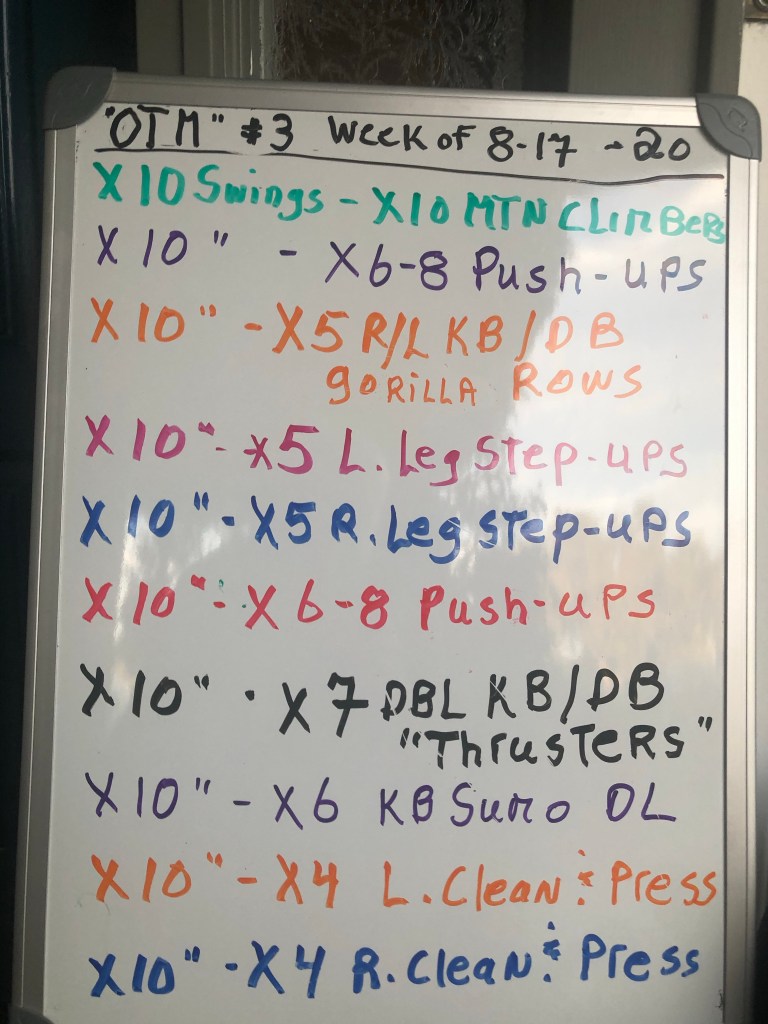 "OTM" #3 Week of 8-17-20
X10 Swings - X10 MTN CLIMBERS
X 10 " - X6-8 Push-ups
X 10 " - X5 R/L KB/DB
gORiLLA ROWS
X 10 " - X5 L. Leg Step-ups
X 10 " - X5 R. Leg Step-ups
X 10 " - X 6-8 Push-ups
X 10 " - X 7 DBL KB/DB
"ThrusTERS"
X 10 " - X6 KB Sumo DL
X 10 " - X4 L. Clean & Press
X10 " - X4 R. Clean & Press